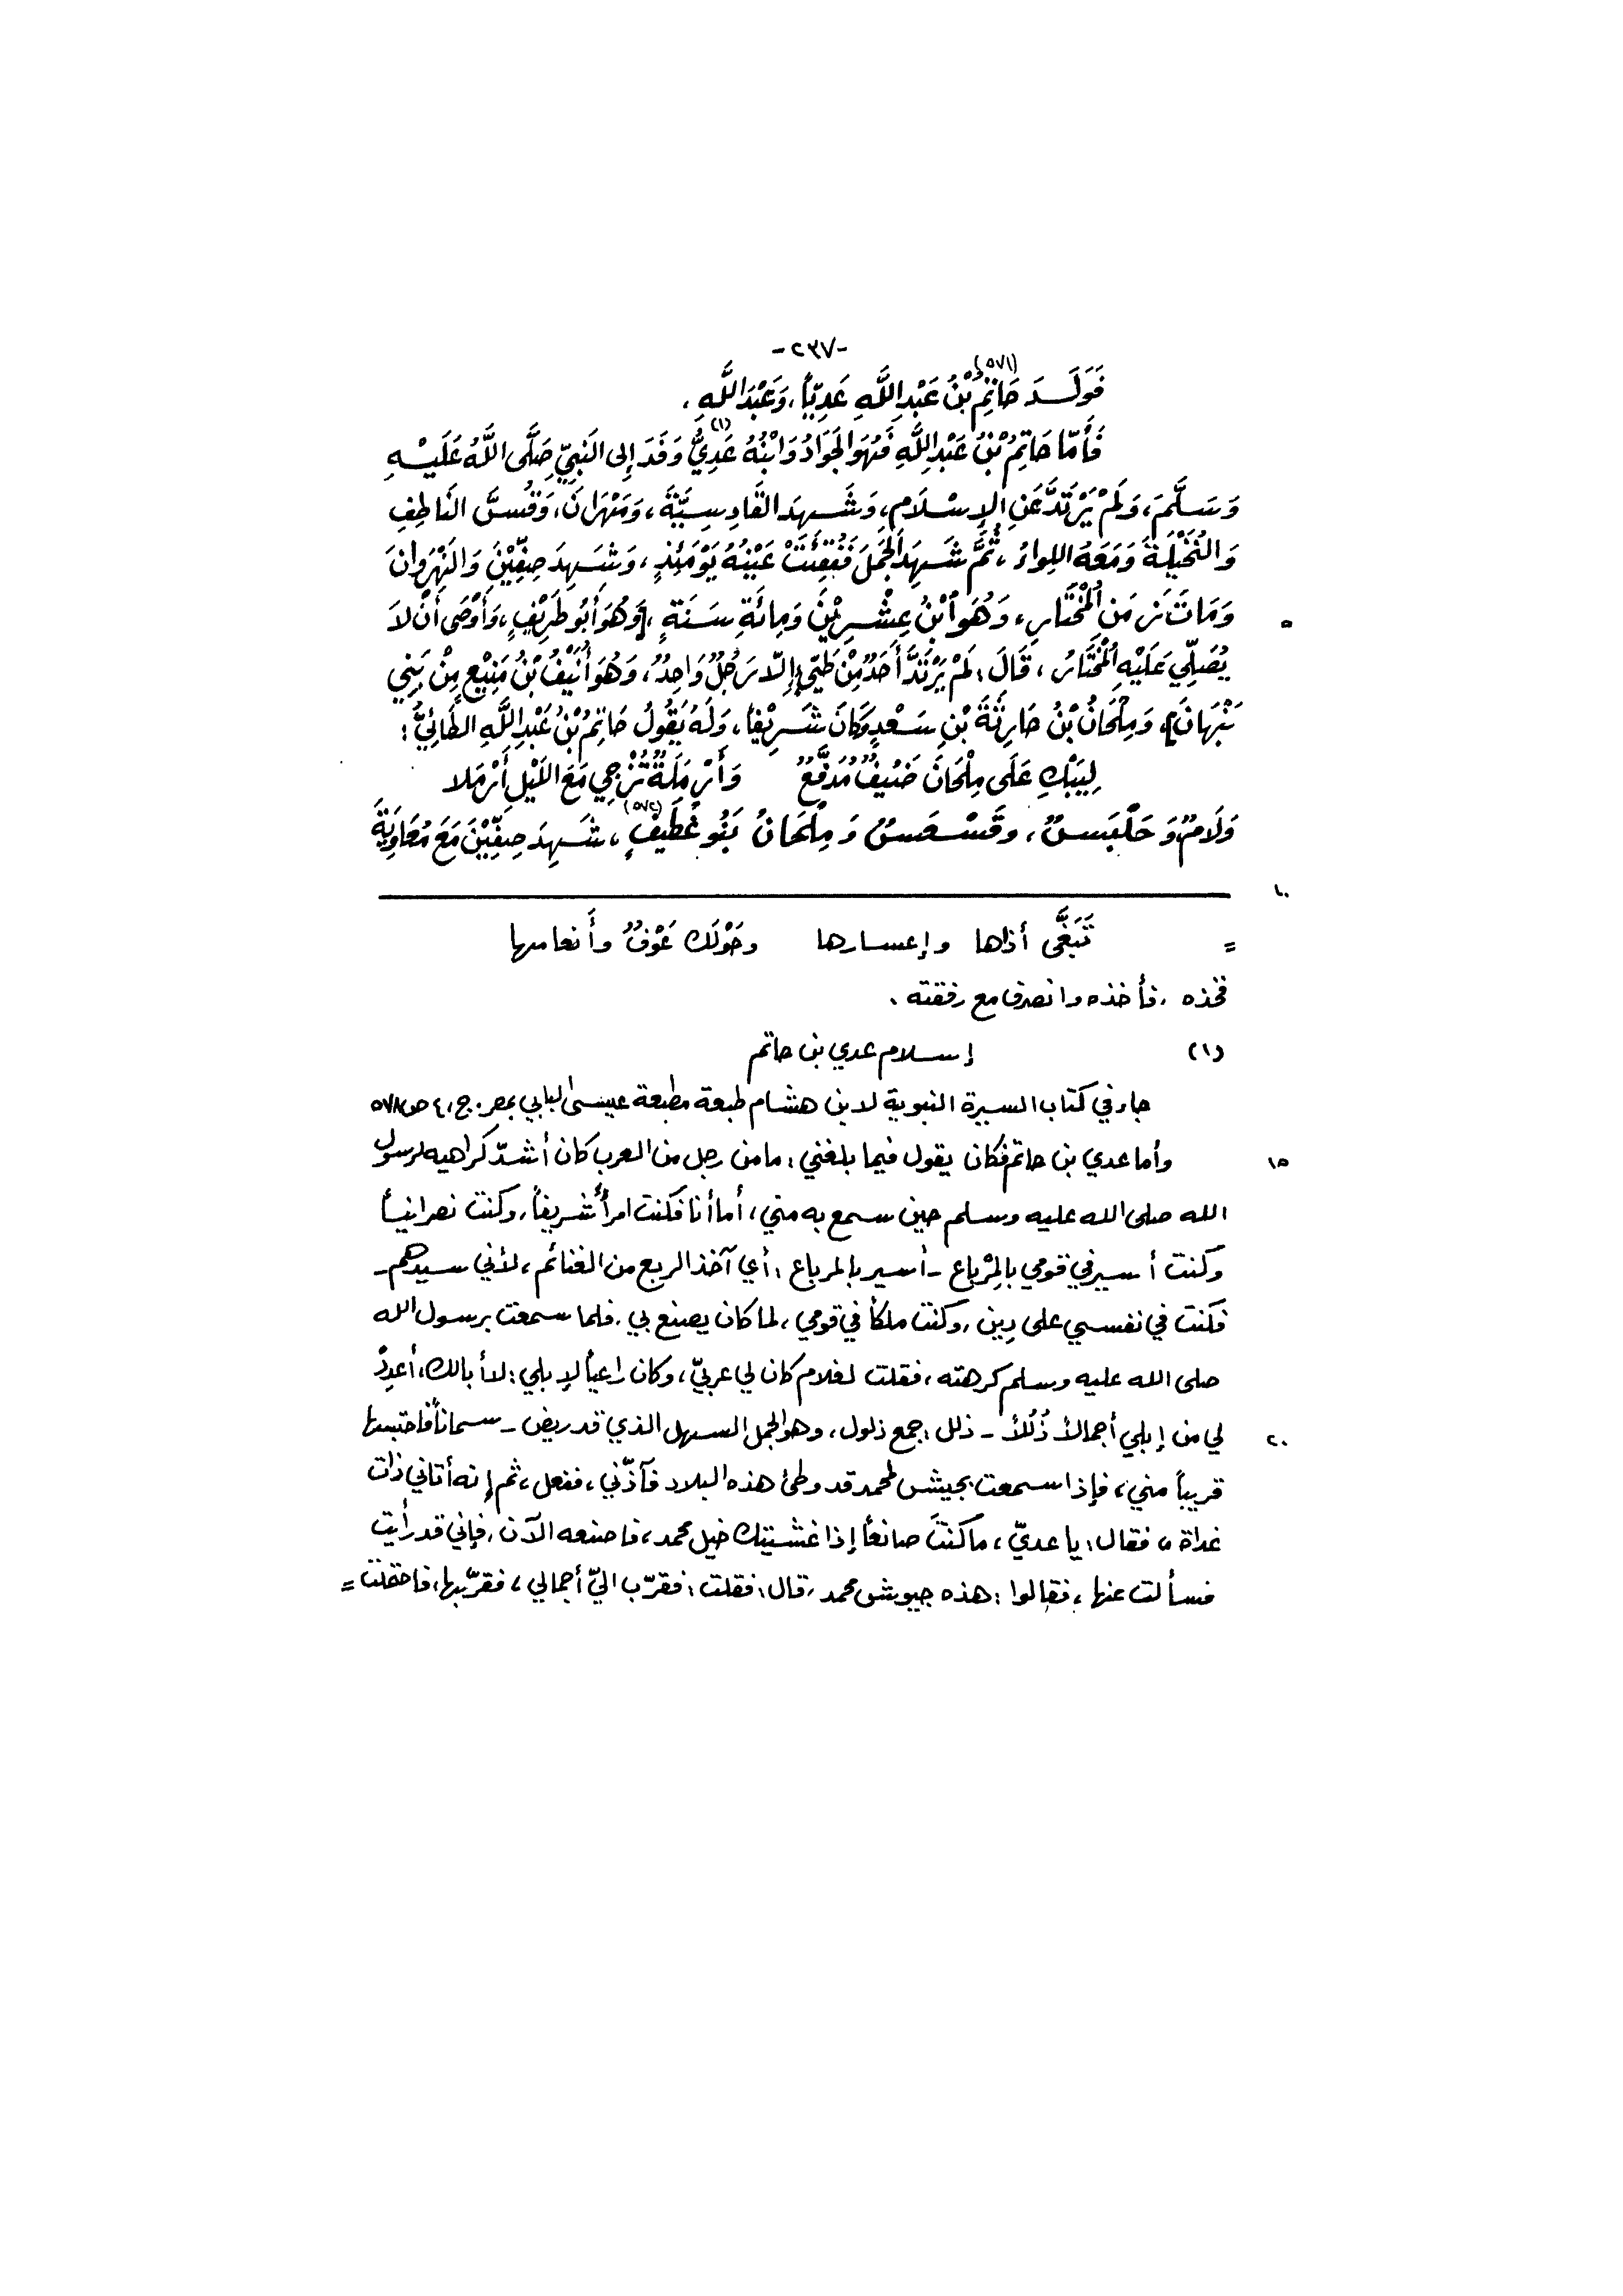 -٢٣٧-
(٥٧١)
فَوَلَــدَ حَاتِمُ بْنُ عَبْدِ اللَّهِ عَدِيّاً، وَعَبْدَ اللَّهِ.
فَأَمّا حَاتِمُ بْنُ عَبْدِ اللَّهِ فَهُوَ الجَوَادُ وَابْنُهُ عَدِيُّ (١) وَفَدَ إِلى النَبِيِّ صَلَّى اللَّهُ عَلَيْـهِ
وَسَلَّمَ، وَلَمْ يَرْتَدَّ عَنِ الإِسْلَامِ، وَشَـهِدَ القَادِسِيَّةَ، وَمَهْرَانَ، وَقُسَّ النَاطِفِ
وَالنُخَيْلَةَ وَمَعَهُ اللِواءُ، ثُمَّ شَـهِدَ الجَمَلَ فَفُقِئَتْ عَيْنُهُ يَوْمَئِذٍ، وَشَـهِدَ صِفِّيْنَ وَالنَهْرَوانَ
وَمَاتَ زَمَنَ المُخْتَارِ، وَهُوَ ابْنُ عِشْـرِيْنَ وَمِائَةِ سَـنَةٍ، [وَهُوَ أَبُو طَرِيْفٍ، وَأَوْصَى أَنْ لاَ
٥
يُصَلِّيَ عَلَيْهِ المُخْتَارُ، قَالَ: لَمْ يَرْتَدَّ أَحَدٌ مِنْ طَيِّءٍ إِلّا رَجُلٌ وَاحِدٌ، وَهُوَ أُنَيْفُ بْنُ مَنِيْعٍ مِنْ بَنِي
نَبْهَانَ]، وَمِلْحَانُ بْنُ حَارِثَةَ بْنِ سَـعْدٍ وَكَانَ شَـرِيْفاً، وَلَهُ يَقُولُ حَاتِمُ بْنُ عَبْدِ اللَّهِ الطَائِيُّ:
لِيَبْكِ عَلَى مِلْحَانَ ضَيْفٌ مُدَفَّعٌ   وَأَرْمَلَةٌ تُزْجِي مَعَ اللَيْلِ أَرْمَلا
وَلَامٌ وَحَلْبَسٌ، وقَسْـعَسٌ وَمِلْحَانُ بَنُو غُطَيْفٍ (٥٧٢)، شَـهِدَ صِفِّيْنَ مَعَ مُعَاوِيَةَ
١٠
=   تَبَغَّى أذاها وإعسـارها   وحَوْلَك عَوْفٌ وأَنعامـها
فخذه، فأخذه وانصرف مع رفقته.
(١)   إسـلام عدي بن حاتم
جاء في كتاب السيرة النبوية لابن هشـام طبعة مطبعة عيسى البابي بمصر. ج، ٤ ص ٥٧٨
وأما عدي بن حاتم فكان يقول فيما بلغني: ما من رجل من العرب كان أشدّ كراهيه لرسول
١٥
الله صلى الله عليه وسلم حين سـمع به مني، أما أنا فكنت امرأً شـريفاً، وكنت نصرانيـاً
وكنت أسـير في قومي بالمِرْباع - أسير بالمرباع: أي آخذ الربع من الغنائم، لأني سـيدهم -
فكنت في نفسـي على دِين، وكنت ملكاً في قومي، لما كان يصنع بي. فلما سـمعت برسول الله
صلى الله عليه وسلم كرهته، فقلت لغلام كان لي عربيّ، وكان راعياً لإبلي: لا أبالك، أعدِدْ
لي من إبلي أجمالاً ذُلُلاً - ذلل: جمع ذلول، وهو الجمل السـهل الذي قد ريض - سـماناً فاحتبسها
٢٠
قريباً مني، فإذا سـمعت بجيش لمحمد قد وطئ هذه البلاد فآذنّي، ففعل، ثم إنه أتاني ذات
غداة، فقال: يا عديّ، ما كنتَ صانعاً إذا غشـيتك خيل محمد، فاصنعه الآن، فإني قد رأيت
فسألت عنها، فقالوا: هذه جيوش محمد، قال: فقلت: فقرّب اليّ أجمالي، فقرّبها، فاحتملت =